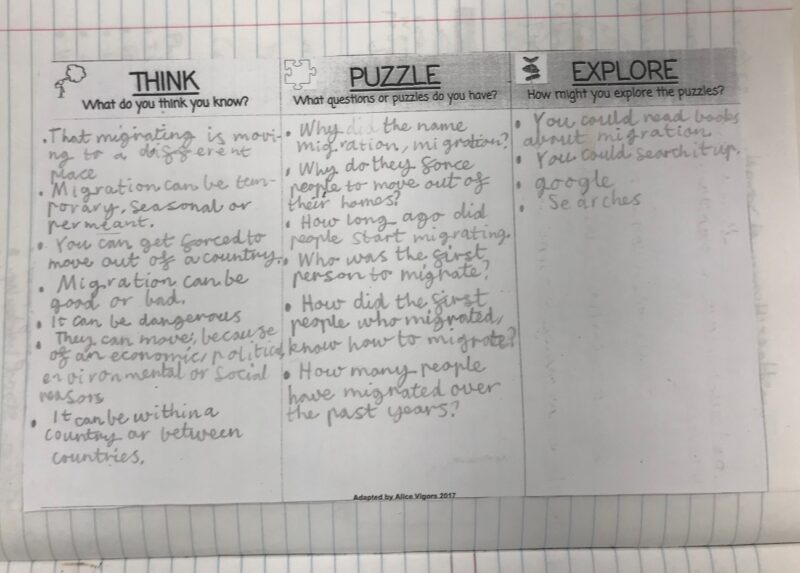 THINK
What do you think you know?
• That migrating is movi-
ng to a different
place
• Migration can be tem-
porary, seasonal or
permeant.
• You can get forced to
move out of a country.
• Migration can be
good or bad.
• It can be dangerous
• They can move, because
of an economic, political,
environmental or Social
reasons
• It can be within a
country or between
countries.
PUZZLE
What questions or puzzles do you have?
• Why did the name
migration, migration?
• Why do they force
people to move out of
their homes?
• How long ago did
people start migrating.
• Who was the first
person to migrate?
• How did the first
people who migrated,
know how to migrate?
• How many people
have migrated over
the past years?
EXPLORE
How might you explore the puzzles?
• You could read books
about migration.
• You could search it up.
• google
• Searches
Adapted by Alice Vigors 2017